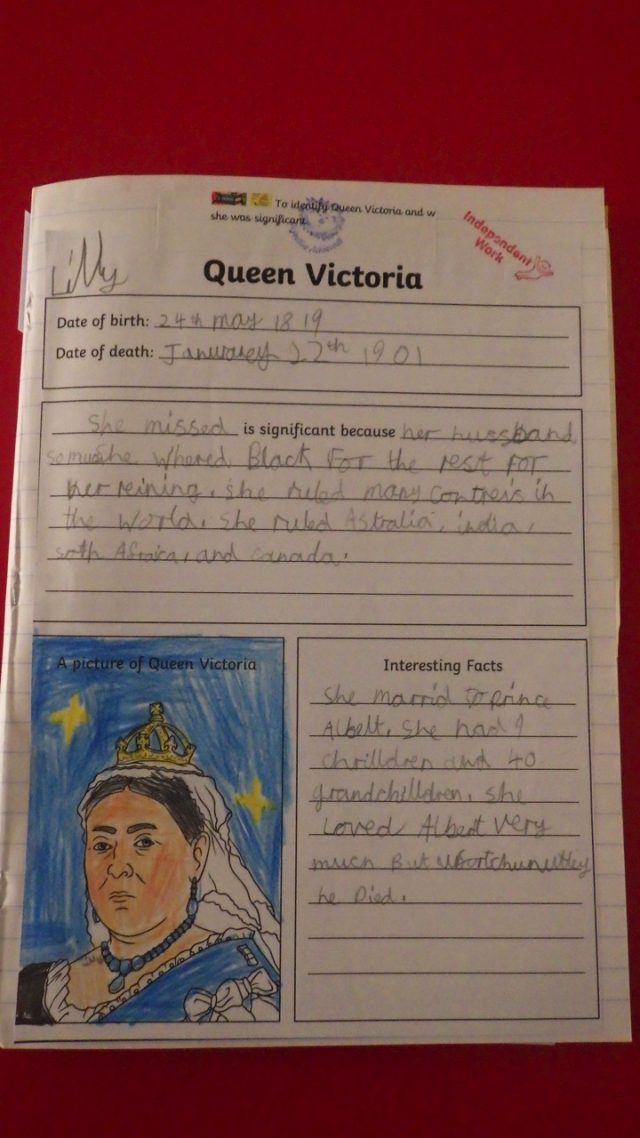 To identify Queen Victoria and w
she was significant.
Independent
Work
Lilly
Queen Victoria
Date of birth: 24th may 1819
Date of death: Janurarey 22th 1901
She missed is significant because her hussband
so much she whered Black For the rest For
her reining. She ruled many Contreis in
the World. She ruled Astralia, india,
soth Afraica, and Canada.
A picture of Queen Victoria
Interesting Facts
She marrid to Prince
Albelt. She had 9
chrilldren and 40
grandchilldren. She
Loved Albert very
much But ufortchunutley
he Died.